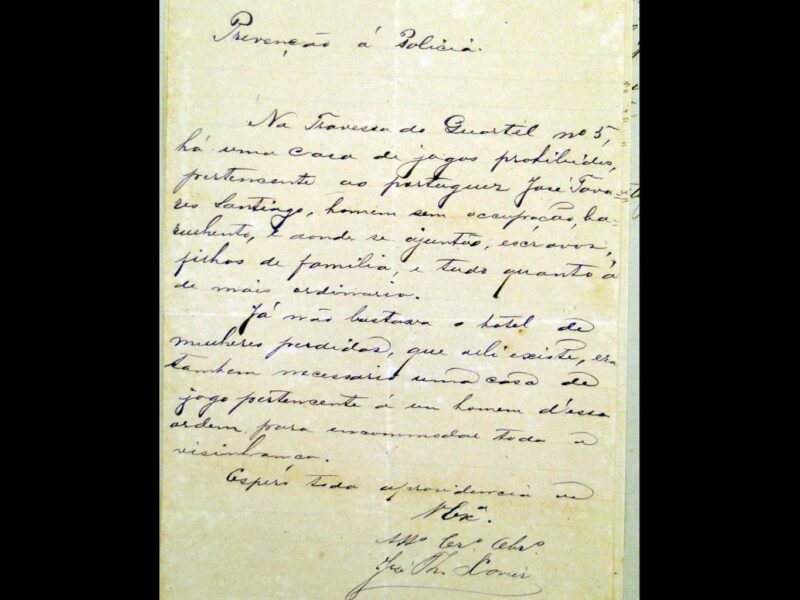 Prevenção á Policia.
Na Travessa do Quartel nº 5,
há uma casa de jogos prohibidos,
pertencente ao portuguez José Tava-
res Santiago, homem sem occupação, ba-
rulhento, é aonde se ajuntão, escravos,
filhos de familia, e tudo quanto á
de mais ordinario.
Já não bastava o hotel de
mulheres perdidas, que ali existe, era
tambem necessario uma casa de
jogo pertencente á um homem d'essa
ordem, para encommodar toda a
visinhança.
Espero toda a providencia de
V Exª.
Attº Crº Obrº
José Xavier